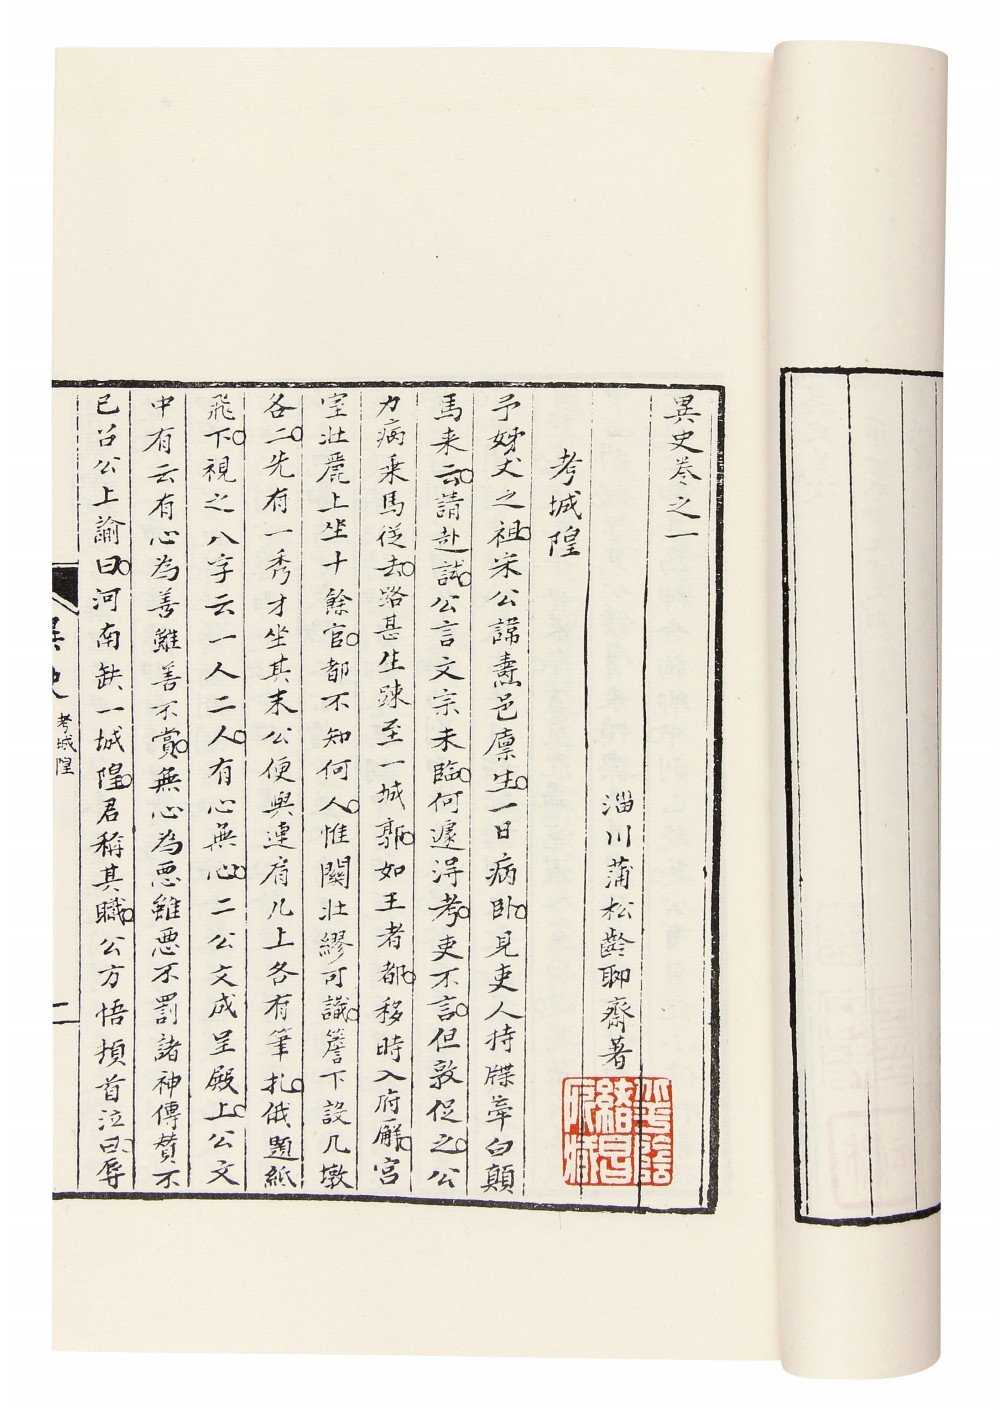 異史卷之一
淄川蒲松齡聊齋著
考城隍
予姊丈之祖。宋公諱燾邑廩生。一日病卧。見吏人持牒牽白顛
馬来云。請赴試。公言文宗未臨。何遽淂考。吏不言。但敦促之。公
力病乗馬從去。路甚生踈至一城郭。如王者都。移時入府廨。宫
室壮麗上坐十餘官。都不知何人。惟関壮繆可識。簷下設几墩
各二。先有一秀才坐其末公便與連肩几上各有筆札。俄題紙
飛下。視之八字云一人二人。有心無心。二公文成呈殿上。公文
中有云有心為善雖善不賞。無心為惡雖惡不罰諸神傳賛不
已召公上諭曰。河南缺一城隍。君稱其職。公方悟頓首泣曰。辱
異史
考城隍